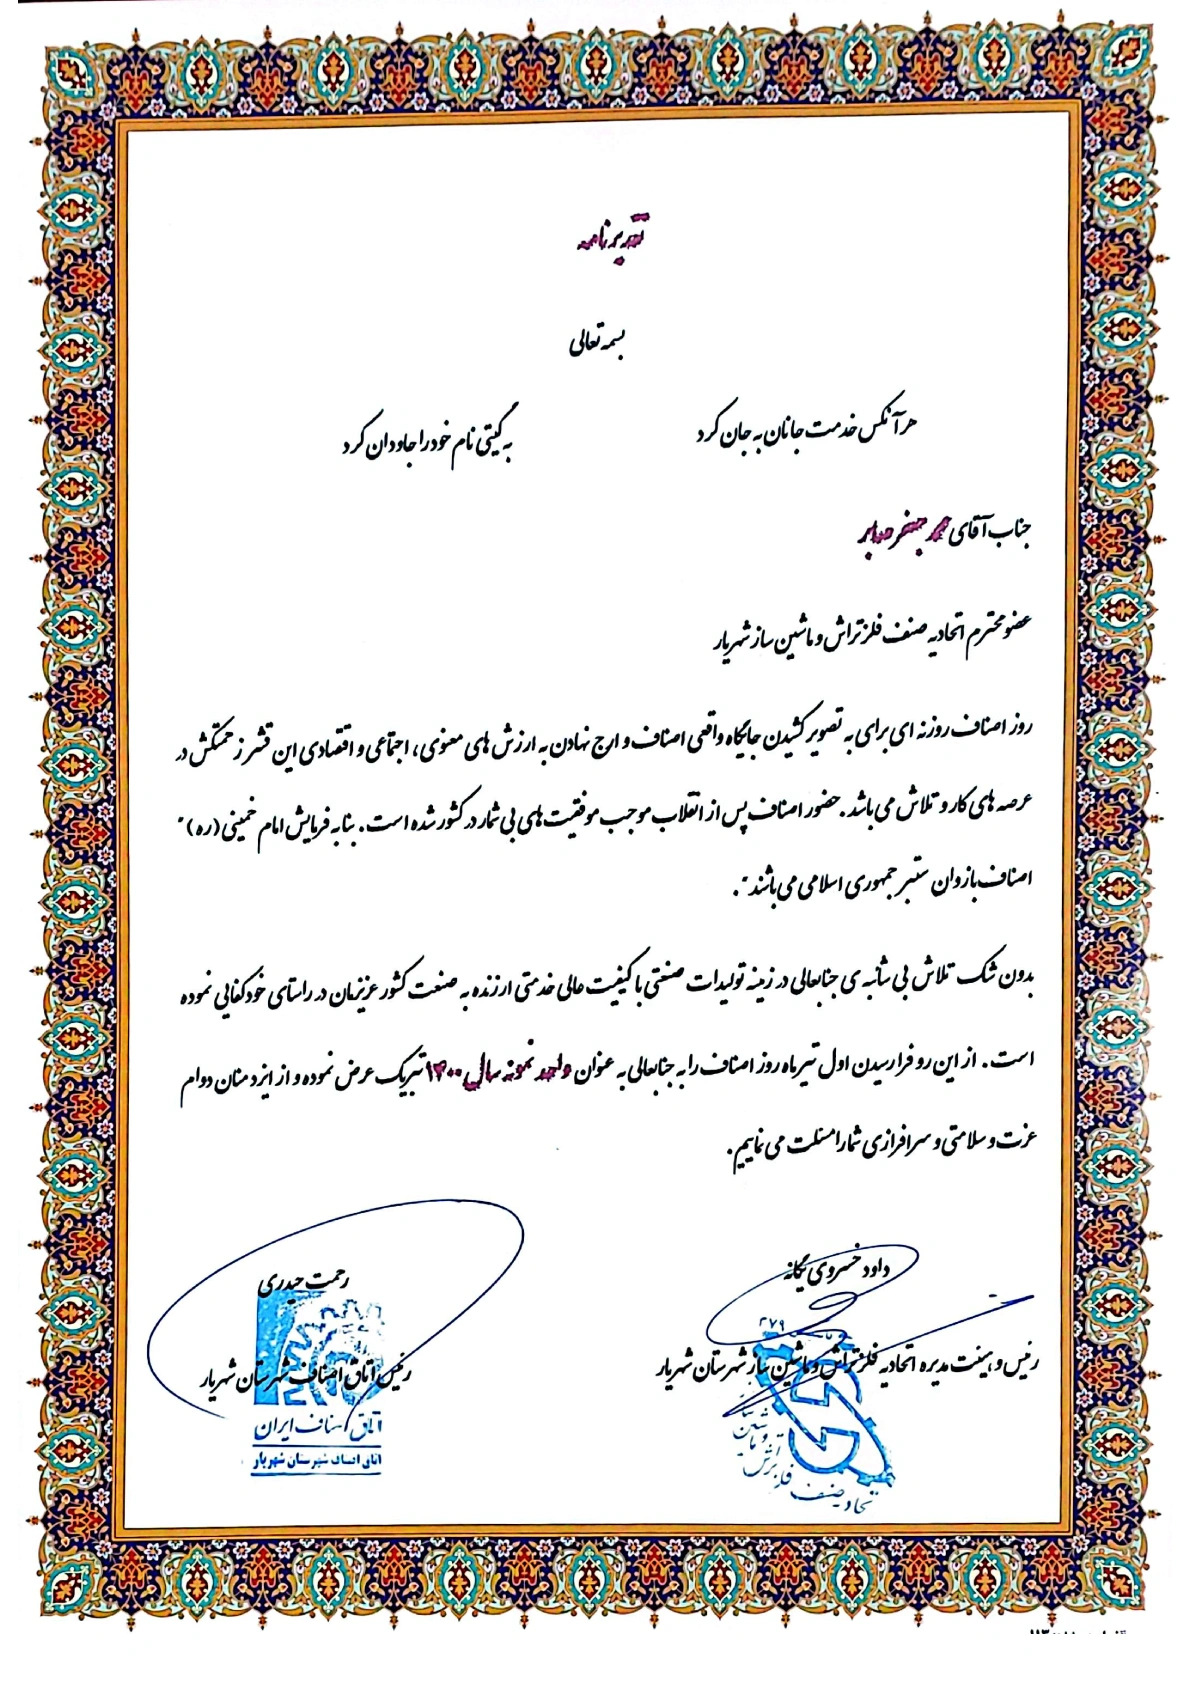 تقدیرنامه
بسمه تعالی
هر آنکس خدمت جانان به جان کرد به گیتی نام خود را جاودان کرد
جناب آقای محمد جعفر صابر
عضو محترم اتحادیه صنف فلزتراش و ماشین ساز شهریار
روز اصناف روزنه ای برای به تصویر کشیدن جایگاه واقعی اصناف و ارج نهادن به ارزش های معنوی، اجتماعی و اقتصادی این قشر زحمتکش در
عرصه های کار و تلاش می باشد. حضور اصناف پس از انقلاب موجب موفقیت های بی شمار در کشور شده است. بنا به فرمایش امام خمینی (ره) "
اصناف بازوان ستبر جمهوری اسلامی می باشند".
بدون شک تلاش بی شائبه ی جنابعالی در زمینه تولیدات صنعتی با کیفیت عالی خدمتی ارزنده به صنعت کشور عزیزمان در راستای خودکفایی نموده
است. از این رو فرارسیدن اول تیرماه روز اصناف را به جنابعالی به عنوان واحد نمونه سال ۱۴۰۰ تبریک عرض نموده و از ایزد منان دوام
عزت و سلامتی و سرافرازی شما را مسئلت می نماییم.
داود خسروی یگانه
رئیس و هیئت مدیره اتحادیه فلزتراش و ماشین ساز شهرستان شهریار
رحمت حیدری
رئیس اتاق اصناف شهرستان شهریار
اتاق اصناف ایران
اتاق اصناف شهرستان شهریار